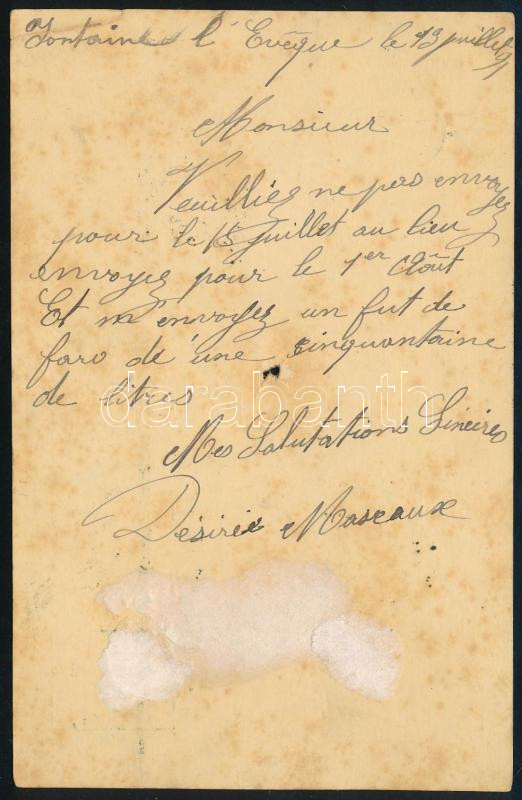 Fontaine l'Evêque le 13 juillet 91
Monsieur
Veuilliez ne pas envoyez
pour le 15 juillet au lieu
envoyez pour le 1er Août
Et m'envoyez un fut de
faro de une cinquantaine
de litres
darabanth
Mes Salutations Sincires
Désirée Maseaux